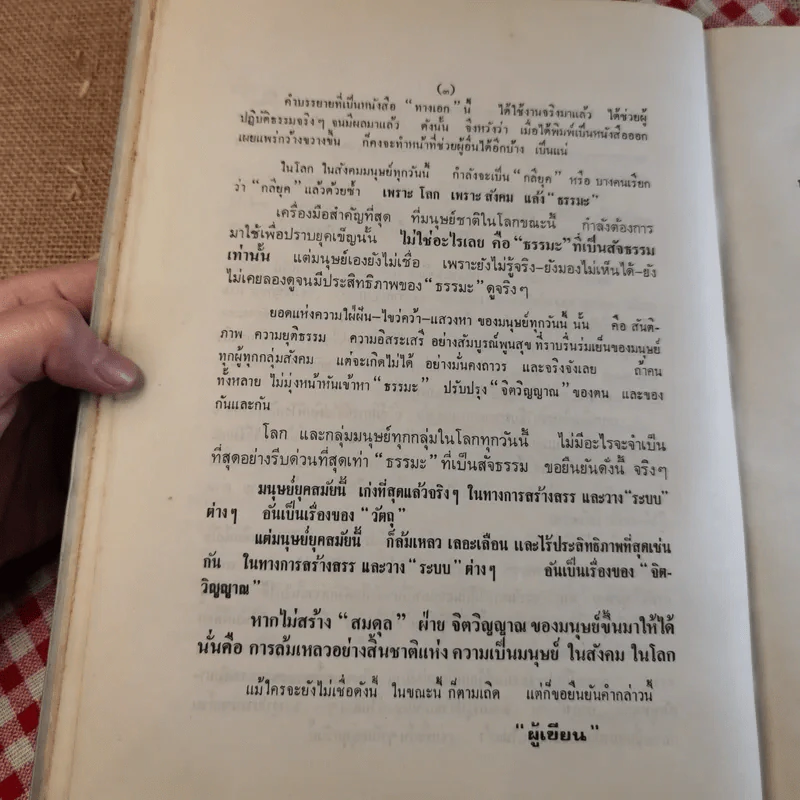 (๓)
คำบรรยายที่เป็นหนังสือ “ทางเอก” นี้ ได้ใช้งานจริงมาแล้ว ได้ช่วยผู้
ปฏิบัติธรรมจริงๆ จนมีผลมาแล้ว ดังนั้น จึงหวังว่า เมื่อได้พิมพ์เป็นหนังสือออก
เผยแพร่กว้างขวางขึ้น ก็คงจะทำหน้าที่ช่วยผู้อื่นได้อีกบ้าง เป็นแน่
ในโลก ในสังคมมนุษย์ทุกวันนี้ กำลังจะเป็น “กลียุค” หรือ บางคนเรียก
ว่า “กลียุค” แล้วด้วยซ้ำ เพราะ โลก เพราะ สังคม แล้ง “ธรรมะ”
เครื่องมือสำคัญที่สุด ที่มนุษย์ชาติในโลกขณะนี้ กำลังต้องการ
มาใช้เพื่อปราบยุคเข็ญนั้น ไม่ใช่อะไรเลย คือ “ธรรมะ” ที่เป็นสัจธรรม
เท่านั้น แต่มนุษย์เองยังไม่เชื่อ เพราะยังไม่รู้จริง-ยังมองไม่เห็นได้-ยัง
ไม่เคยลองดูจนมีประสิทธิภาพของ “ธรรมะ” ดูจริงๆ
ยอดแห่งความใฝ่ฝัน-ไขว่คว้า-แสวงหา ของมนุษย์ทุกวันนี้ นั้น คือ สันติ-
ภาพ ความยุติธรรม ความอิสระเสรี อย่างสมบูรณ์พูนสุข ที่ราบรื่นร่มเย็นของมนุษย์
ทุกผู้ทุกกลุ่มสังคม แต่จะเกิดไม่ได้ อย่างมั่นคงถาวร และจริงจังเลย ถ้าคน
ทั้งหลาย ไม่มุ่งหน้าหันเข้าหา “ธรรมะ” ปรับปรุง “จิตวิญญาณ” ของตน และของ
กันและกัน
โลก และกลุ่มมนุษย์ทุกกลุ่มในโลกทุกวันนี้ ไม่มีอะไรจะจำเป็น
ที่สุดอย่างรีบด่วนที่สุดเท่า “ธรรมะ” ที่เป็นสัจธรรม ขอยืนยันดังนี้ จริงๆ
มนุษย์ยุคสมัยนี้ เก่งที่สุดแล้วจริงๆ ในทางการสร้างสรร และวาง “ระบบ”
ต่างๆ อันเป็นเรื่องของ “วัตถุ”
แต่มนุษย์ยุคสมัยนี้ ก็ล้มเหลว เลอะเลือน และไร้ประสิทธิภาพที่สุดเช่น
กัน ในทางการสร้างสรร และวาง “ระบบ” ต่างๆ อันเป็นเรื่องของ “จิต-
วิญญาณ”
หากไม่สร้าง “สมดุล” ฝ่าย จิตวิญญาณ ของมนุษย์ขึ้นมาให้ได้
นั่นคือ การล้มเหลวอย่างสิ้นชาติแห่ง ความเป็นมนุษย์ ในสังคม ในโลก
แม้ใครจะยังไม่เชื่อดังนี้ ในขณะนี้ ก็ตามเถิด แต่ก็ขอยืนยันคำกล่าวนี้
“ผู้เขียน”